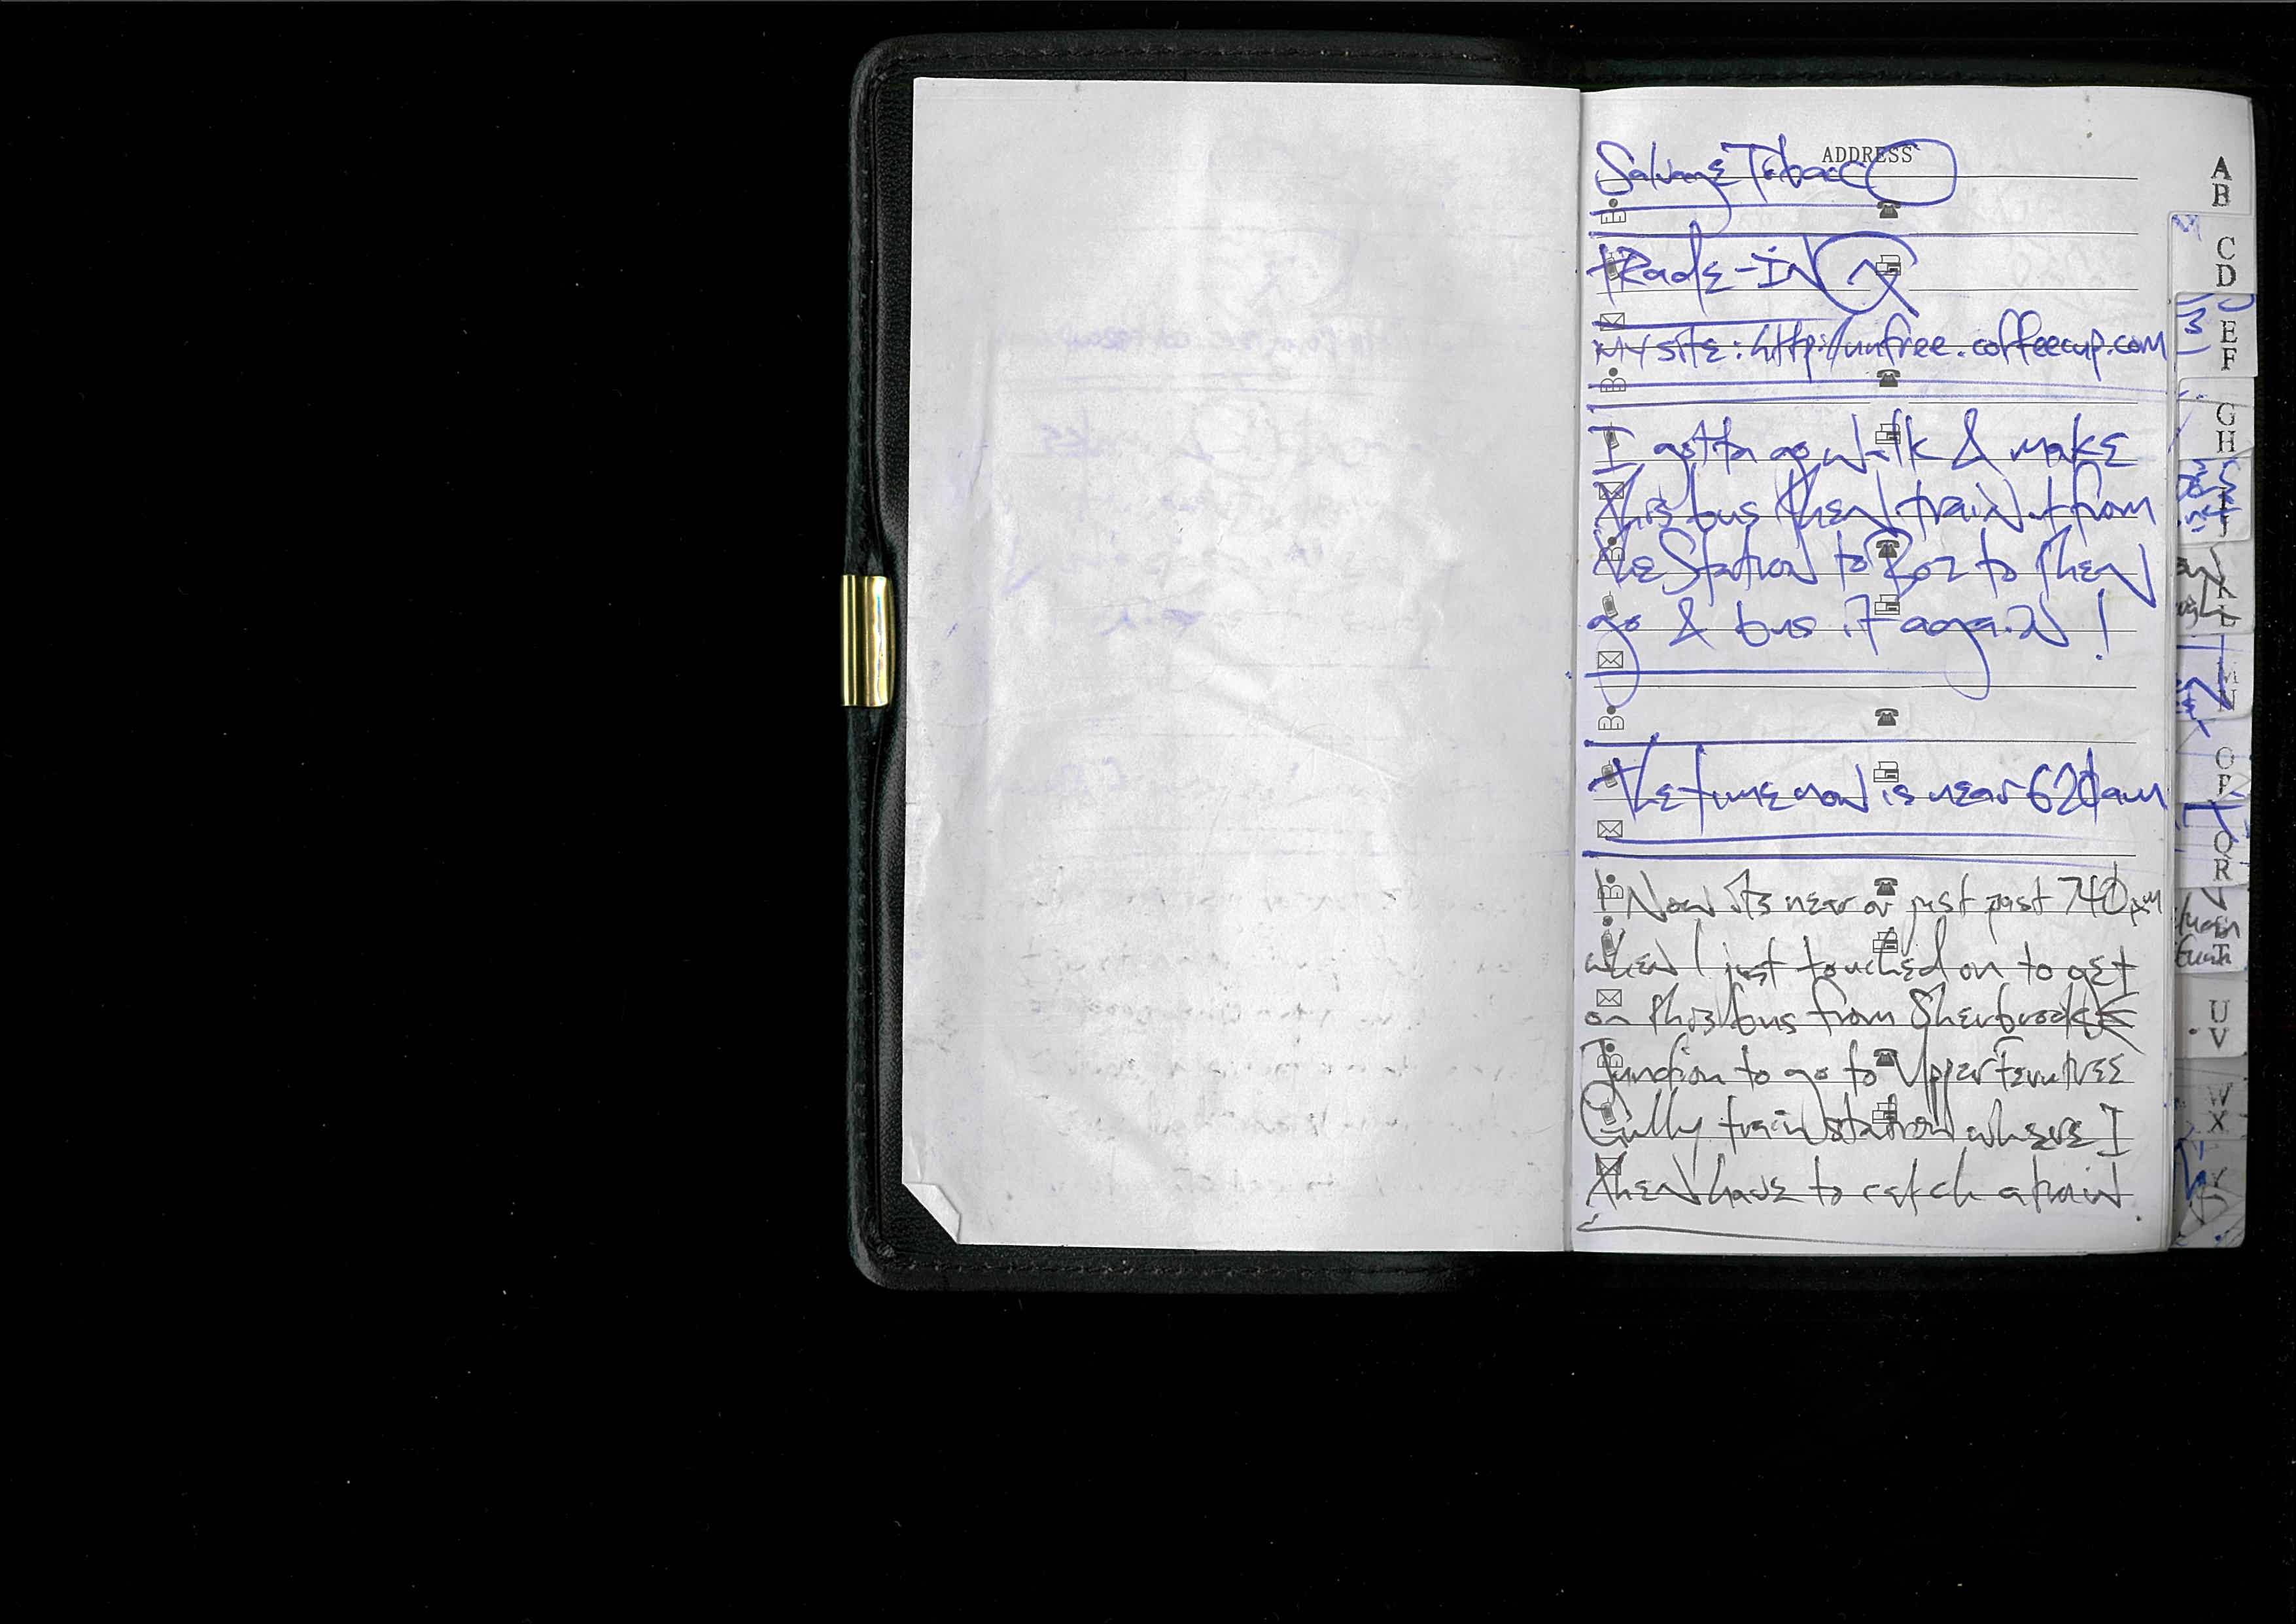 ADDRESS
Salvage Tobacco
tRade-iN
My site: http://unfree.coffeecup.com
I gotta go walk & make
this bus then train it from
the Station to Roz to then
go & bus it again!
the time now is near 620am
Now its near or just past 740pm
when I just touched on to get
on this bus from Sherbrooke
Junction to go to Upper Ferntree
Gully train station where I
then have to catch a train
A
B
C
D
E
F
G
H
I
J
K
L
M
N
O
P
Q
R
T
U
V
W
X
Y